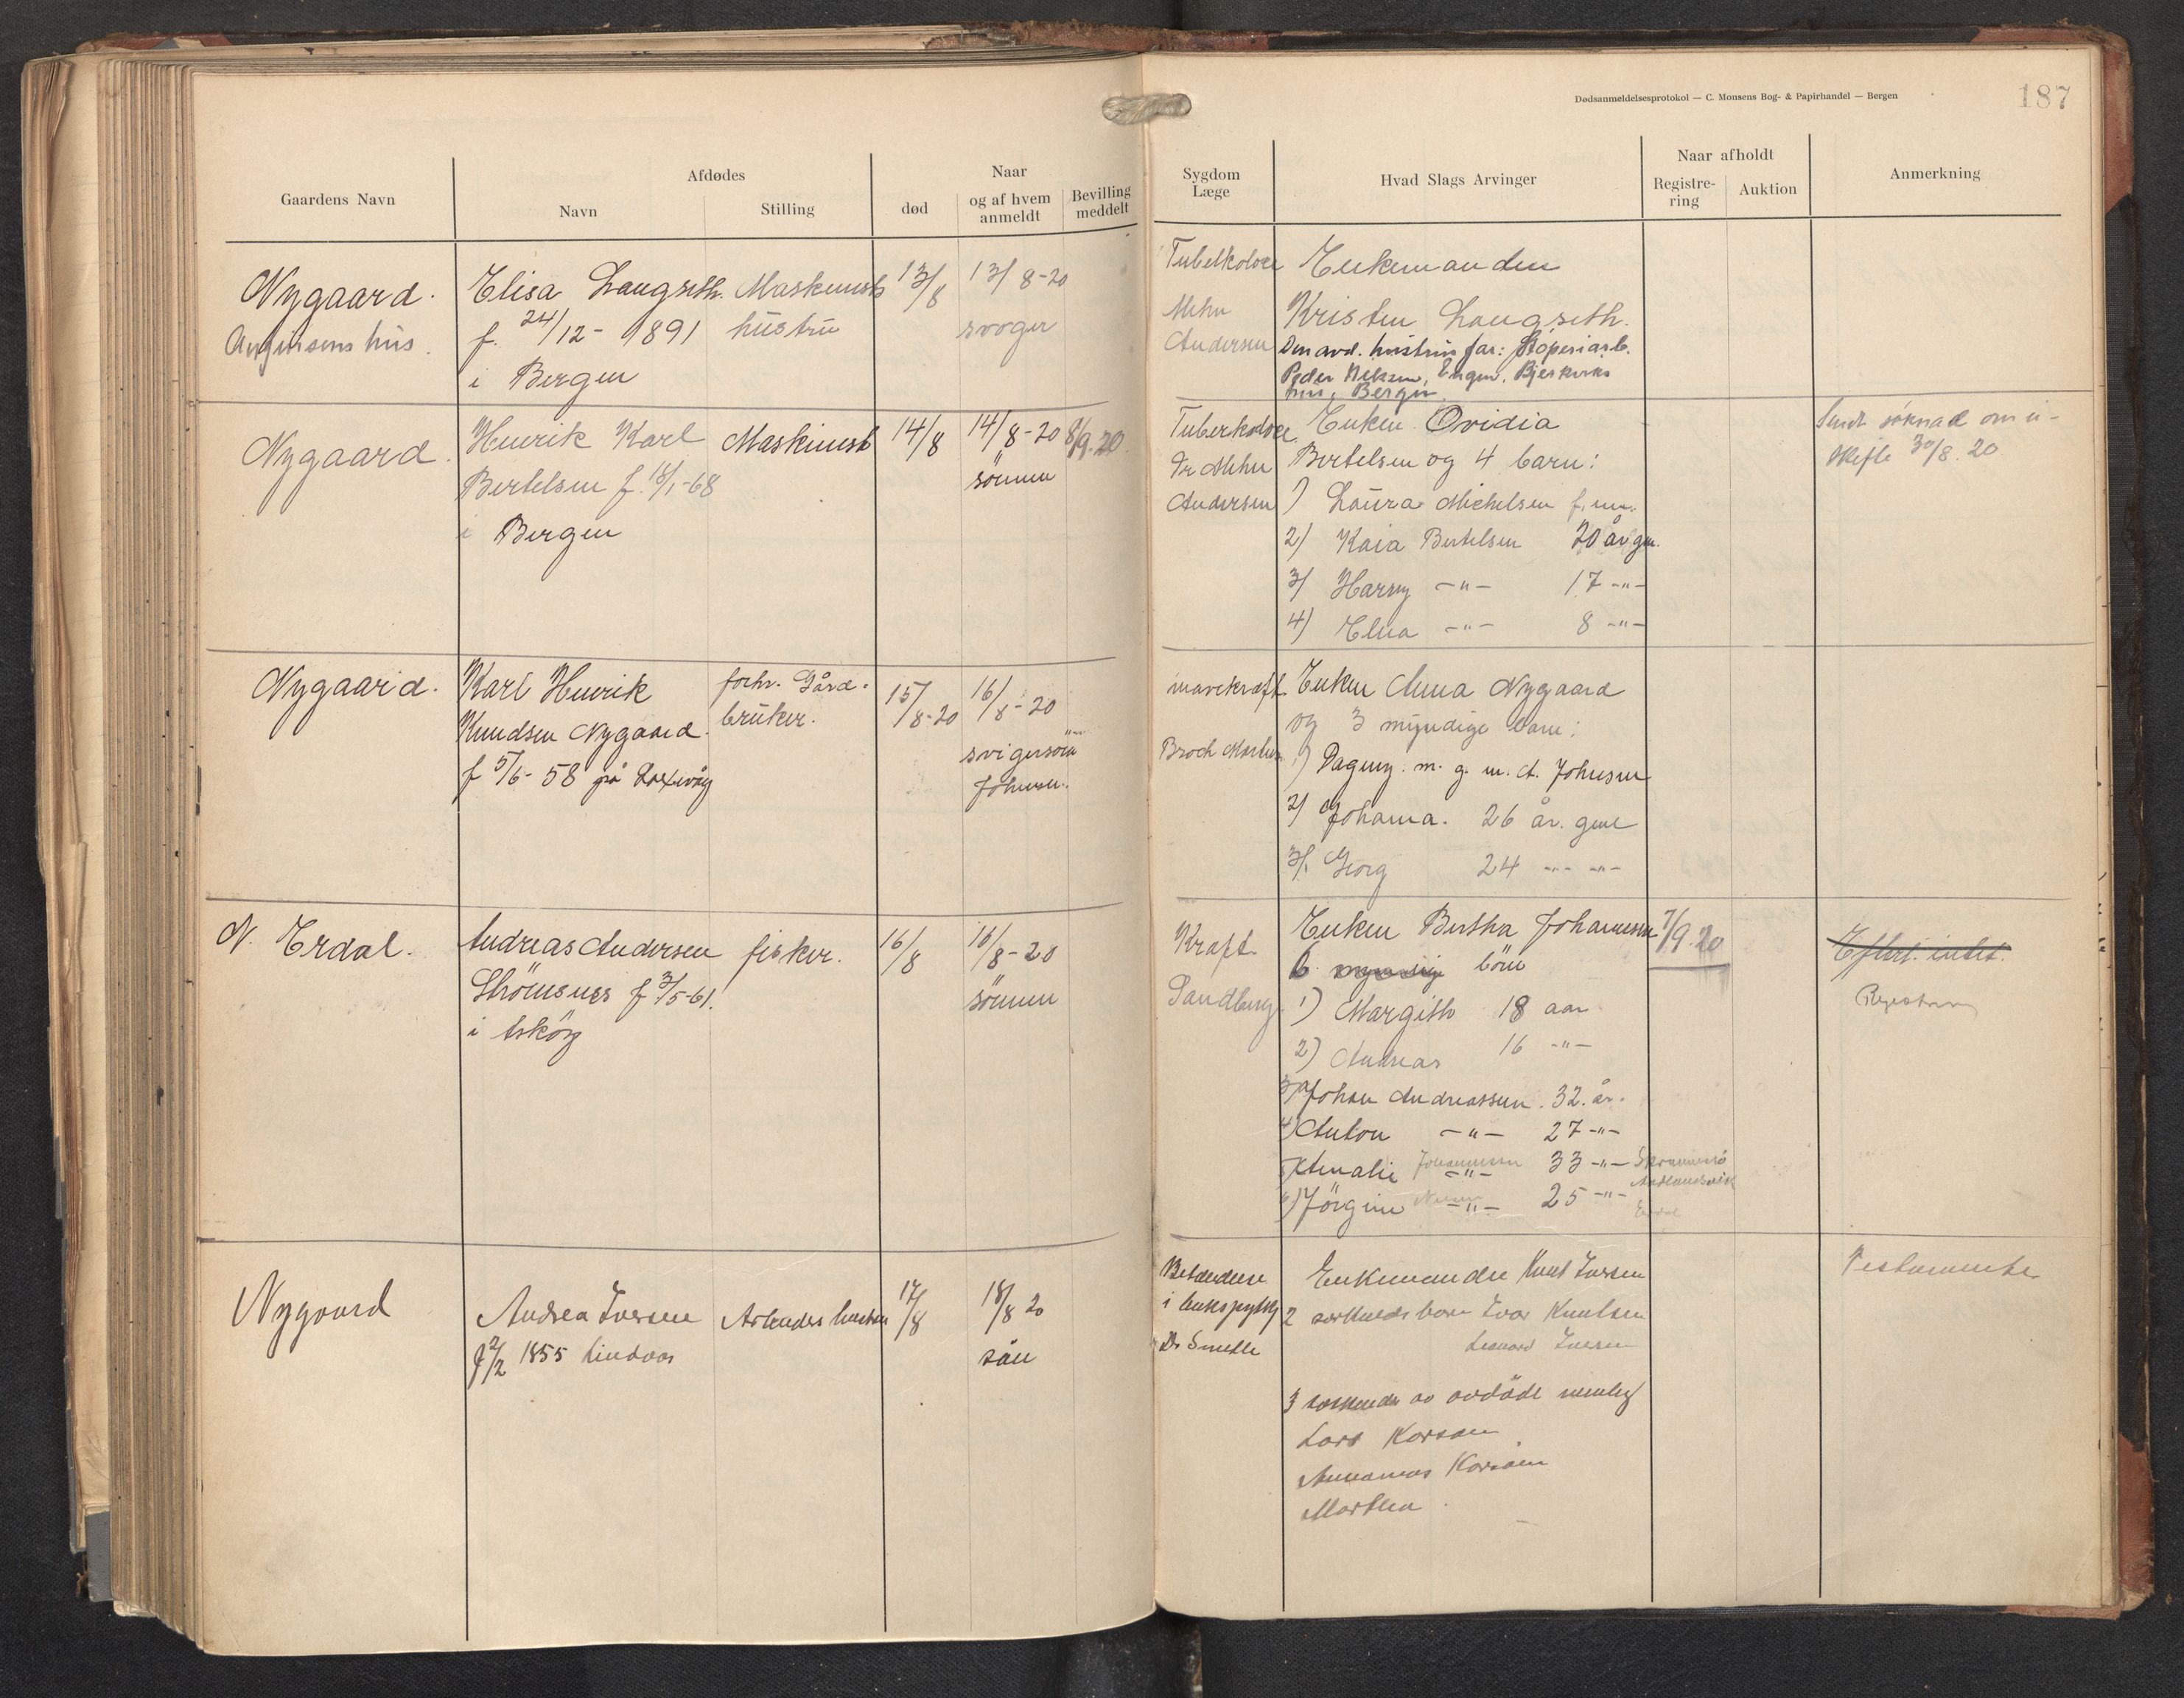 Dødsanmeldelsesprotokol — C. Monsens Bog- & Papirhandel — Bergen
187
Gaardens Navn
Afdødes
Navn
Stilling
Naar
død
og af hvem anmeldt
Bevilling meddelt
Sygdom
Læge
Hvad Slags Arvinger
Naar afholdt
Registre-
ring
Auktion
Anmerkning
Nygaard.
hus.
Elisa Langseth.
f. 24/12 - 1891
i Bergen
Maskinist
hustru
13/8
13/8-20
svoger
Tuberkolose
Mohn
Andersen
Enkemanden
Kristen Langseth.
Den avd. hustrus far: Støperiarb.
Peder Nielsen, Engen,
hus, Bergen.
Nygaard.
Henrik Karl
Bertelsen f. /1-68
i Bergen
Maskinist
14/8
14/8-20
sönnen
8/9.20.
Tuberkolose
Dr Mohn
Andersen
Enken Ovidia
Bertelsen og 4 barn:
1) Laura Michelsen f.
2) Kaia Bertelsen 20 år gm.
3) Harry -"- 17 -"-
4) Elna -"- 8 -"-
Sendt söknad om u-
skifte 30/8.20
Nygaard.
Karl Henrik
Knudsen Nygaard.
f 5/6-58 på Laxevåg
forhv. Gård-
bruker.
15/8-20
16/8-20
svigersön
Johnsen.
mavekræft
Broch
Enken Anna Nygaard
og 3 myndige barn:
1) Dagny. m. g. m. A. Johnsen
2) Johanna. 26 år.
3) Georg 24 -"- -"-
N. Erdal.
Andreas Andersen
Strömsnes f 3/5-61.
i Askøy
fisker.
16/8
16/8-20
sönnen
Kræft
Sandberg
Enken Bertha Johannesen
6 myndig börn
1) Margith 18 aar
2) Andreas 16 -"-
3) Johan Andreassen. 32. år.
4) Anton -"- 27 -"-
5) Amalie Johannessen -"- 33 -"-
6) Jörgine -"- 25 -"-
7/9.20
Registrering
Nygaard
Andrea Iversen
f 2/2 1855 Lindaas
Arbeiders hustru
17/8
18/8 20
sön
Betændelse
i
Dr
Enkemanden Knut Iversen
2 særkulds barn Ivar Knutsen
Leonard Iversen
3 söskende av avdöde nemlig
Lars
Martha
Testamente